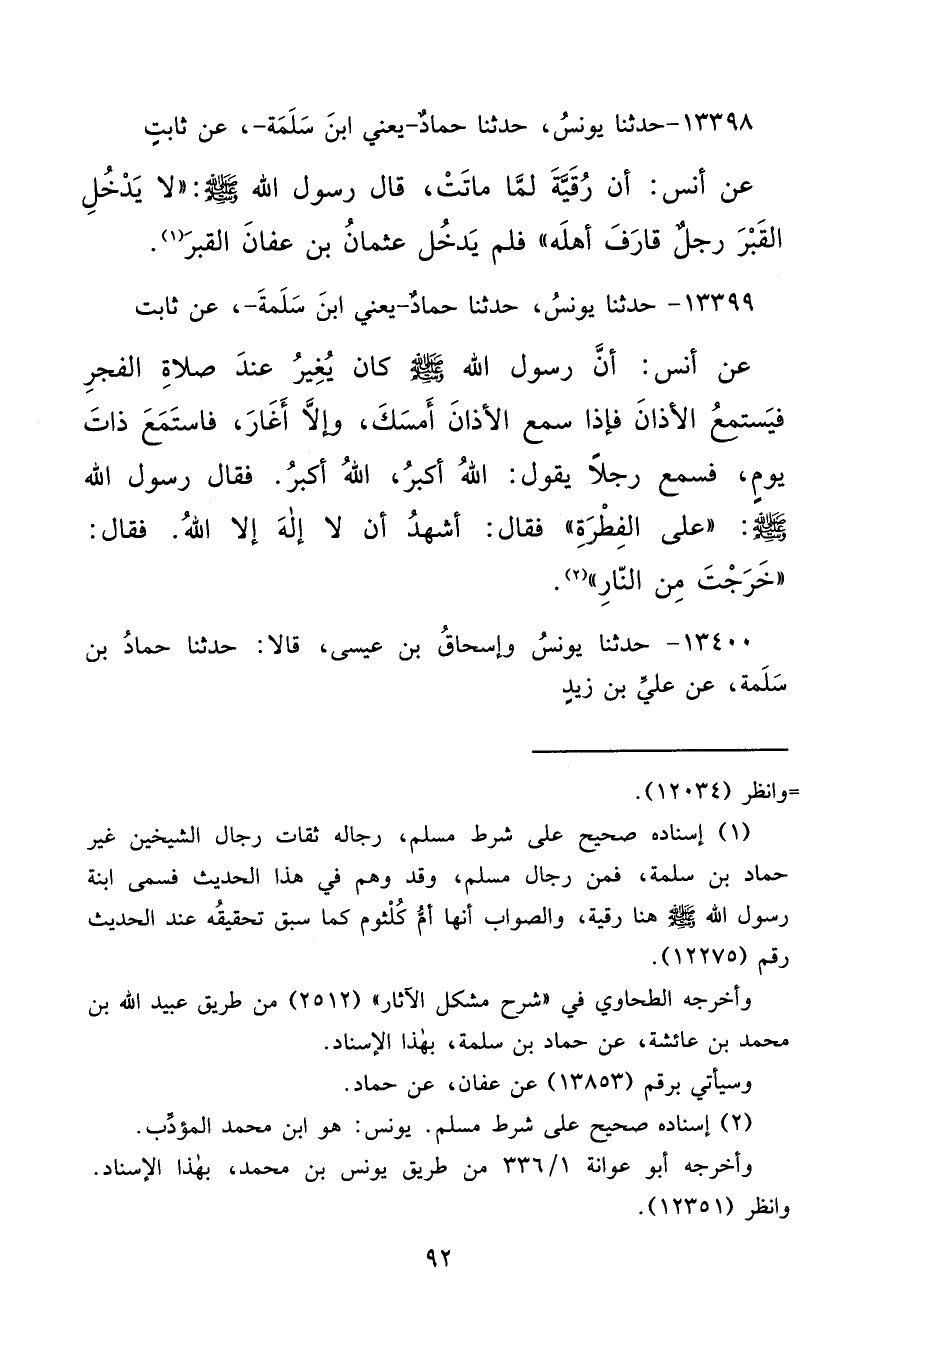 ١٣٣٩٨-حدثنا يونسُ، حدثنا حمادٌ-يعني ابنَ سَلَمَة-، عن ثابتٍ
عن أنس: أن رُقَيَّةَ لمَّا ماتَتْ، قال رسول الله ﷺ: «لا يَدْخُلِ
القَبْرَ رجلٌ قارَفَ أهلَه» فلم يَدخُل عثمانُ بن عفانَ القبرَ(١).
١٣٣٩٩- حدثنا يونسُ، حدثنا حمادٌ-يعني ابنَ سَلَمةَ-، عن ثابت
عن أنس: أنَّ رسول الله ﷺ كان يُغِيرُ عندَ صلاةِ الفجرِ
فيَستمِعُ الأذانَ فإذا سمع الأذانَ أَمسَكَ، وإلاَّ أَغَارَ، فاستَمَعَ ذاتَ
يومٍ، فسمع رجلاً يقول: اللهُ أكبرُ، اللهُ أكبرُ. فقال رسول الله
ﷺ: «على الفِطْرَةِ» فقال: أشهدُ أن لا إلٰهَ إلا اللهُ. فقال:
«خَرَجْتَ مِن النّارِ»(٢).
١٣٤٠٠- حدثنا يونسُ وإسحاقُ بن عيسى، قالا: حدثنا حمادُ بن
سَلَمة، عن عليِّ بن زيدٍ
=وانظر (١٢٠٣٤).
(١) إسناده صحيح على شرط مسلم، رجاله ثقات رجال الشيخين غير
حماد بن سلمة، فمن رجال مسلم، وقد وهم في هذا الحديث فسمى ابنة
رسول الله ﷺ هنا رقية، والصواب أنها أمُّ كُلْثوم كما سبق تحقيقُه عند الحديث
رقم (١٢٢٧٥).
وأخرجه الطحاوي في «شرح مشكل الآثار» (٢٥١٢) من طريق عبيد الله بن
محمد بن عائشة، عن حماد بن سلمة، بهٰذا الإسناد.
وسيأتي برقم (١٣٨٥٣) عن عفان، عن حماد.
(٢) إسناده صحيح على شرط مسلم. يونس: هو ابن محمد المؤدِّب.
وأخرجه أبو عوانة ٣٣٦/١ من طريق يونس بن محمد، بهٰذا الإسناد.
وانظر (١٢٣٥١).
٩٢